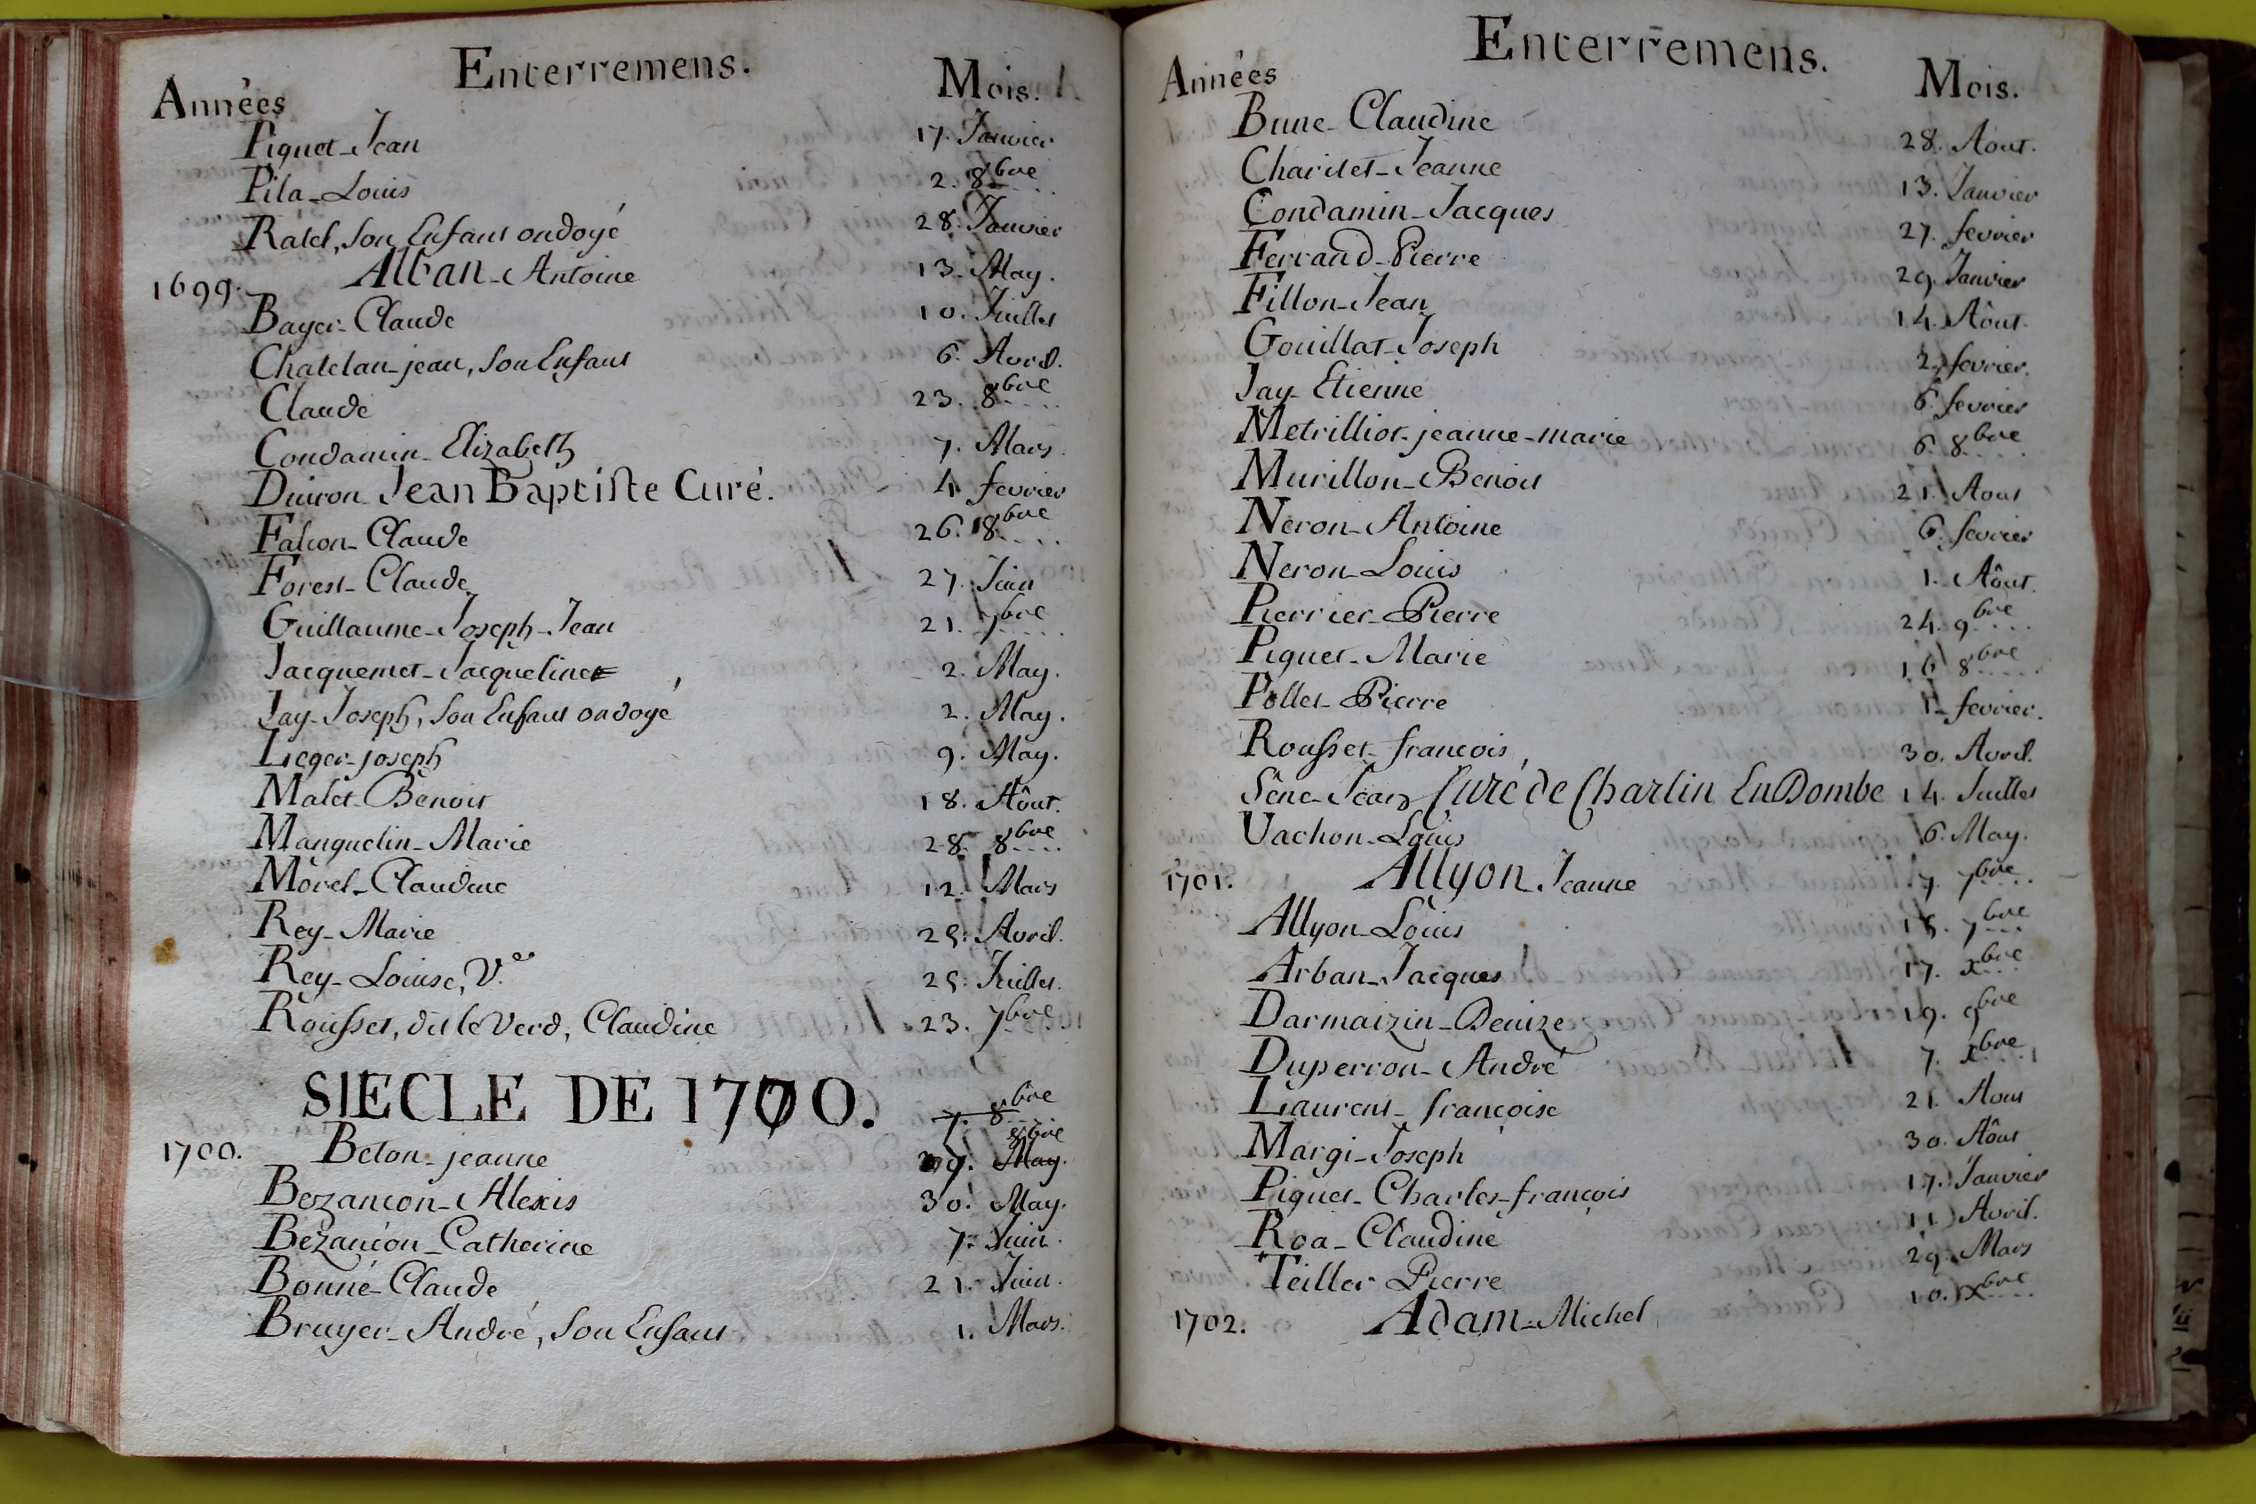 Enterremens.
Années Mois.
Piquet Jean 17. Janvier
Pila Louis 2. 8bre
Ratel, son Enfant ondoyé 28. Janvier
1699. Alban Antoine 13. May.
Bayer Claude 10. Juillet
Chatelan jean, son Enfant 6. Avril.
Claude 23. 8bre
Condamin Elizabeth 7. Mars.
Duiron Jean Baptiste Curé. 4 fevrier
Falcon Claude 26. 8bre
Forest Claude 27. Juin
Guillaume Joseph Jean 21. 7bre
Jacquemet Jacqueline 2. May.
Jay Joseph, son Enfant ondoyé 2. May.
Leger joseph 9. May.
Malet Benoit 18. Aôut.
Manquelin Marie 28. 8bre
Morel Claudine 12. Mars
Rey Marie 25. Avril.
Rey Louise, Ve. 25. Juillet.
Rousset, dit le Verd, Claudine 23. 7bre
SIECLE DE 1700. 7. 8bre
8bre
1700. Beton jeanne 29. May.
Bezancon Alexis 30. May.
Bezancon Catherine 7. Juin.
Bonne Claude 21. Juin.
Bruyer André, son Enfant 1. Mars.
Enterremens.
Années Mois.
Bune Claudine 28. Aout.
Charitet Jeanne 13. Janvier
Condamin Jacques 27. fevrier
Ferrand Pierre 29 Janvier
Fillon Jean 14. Aôut.
Gouillat Joseph 2. fevrier.
Jay Etienne 6. fevrier
Metrilliot jeanne marie 6. 8bre
Murillon Benoit 21. Aout
Neron Antoine 6. fevrier
Neron Louis 1. Aôut.
Pierrier Pierre 24. 9bre
Piquet Marie 16 8bre
Pollet Pierre 1. fevrier.
Rousset francois 30. Avril.
Séne Jean Curé de Charlin En Dombe 14. Juillet
Vachon Louis 6. May.
1701. Allyon Jeanne 7. 7bre
Allyon Louis 15. 7bre
Arban Jacques 17. xbre
Darmaizin Denize 19. 9bre
Duperron André 7. xbre
Laurent françoise 21. Aout
Margi Joseph 30. Aôut
Piquet Charles françois 17. Janvier
Roa Claudine 11. Avril.
Teiller Pierre 29. Mars
1702. Adam Michel 10. xbre